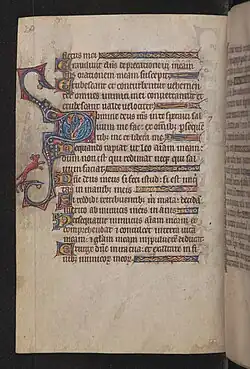 fletus mei
Exaudivit dns deprecationē meam
dns orationem meam suscepit
Erubescant et conturbentur vehemen
ter omnes inimici mei convertantur et
erubescant valde velociter
Domine deus ms in te speravi sal
vum me fac ex omĩbz pseqñ
tibz me et libera me
Nequando rapiat ut leo aĩam meam
dum non est qui redimat neqz qui sal
vum faciat
Dñe deus meus si feci istud si est iniq
tas in manibz meis
Si reddidi retribuentibz m mala deci
merito ab inimicis meis inanis
Persequatur inimicus aĩam meam et
comprehendat et conculcet in terra vitā
meam et glam meam in pulverē deducat
Exurge dñe in ira tua et exaltare in fi
nibz inimicorz meorz